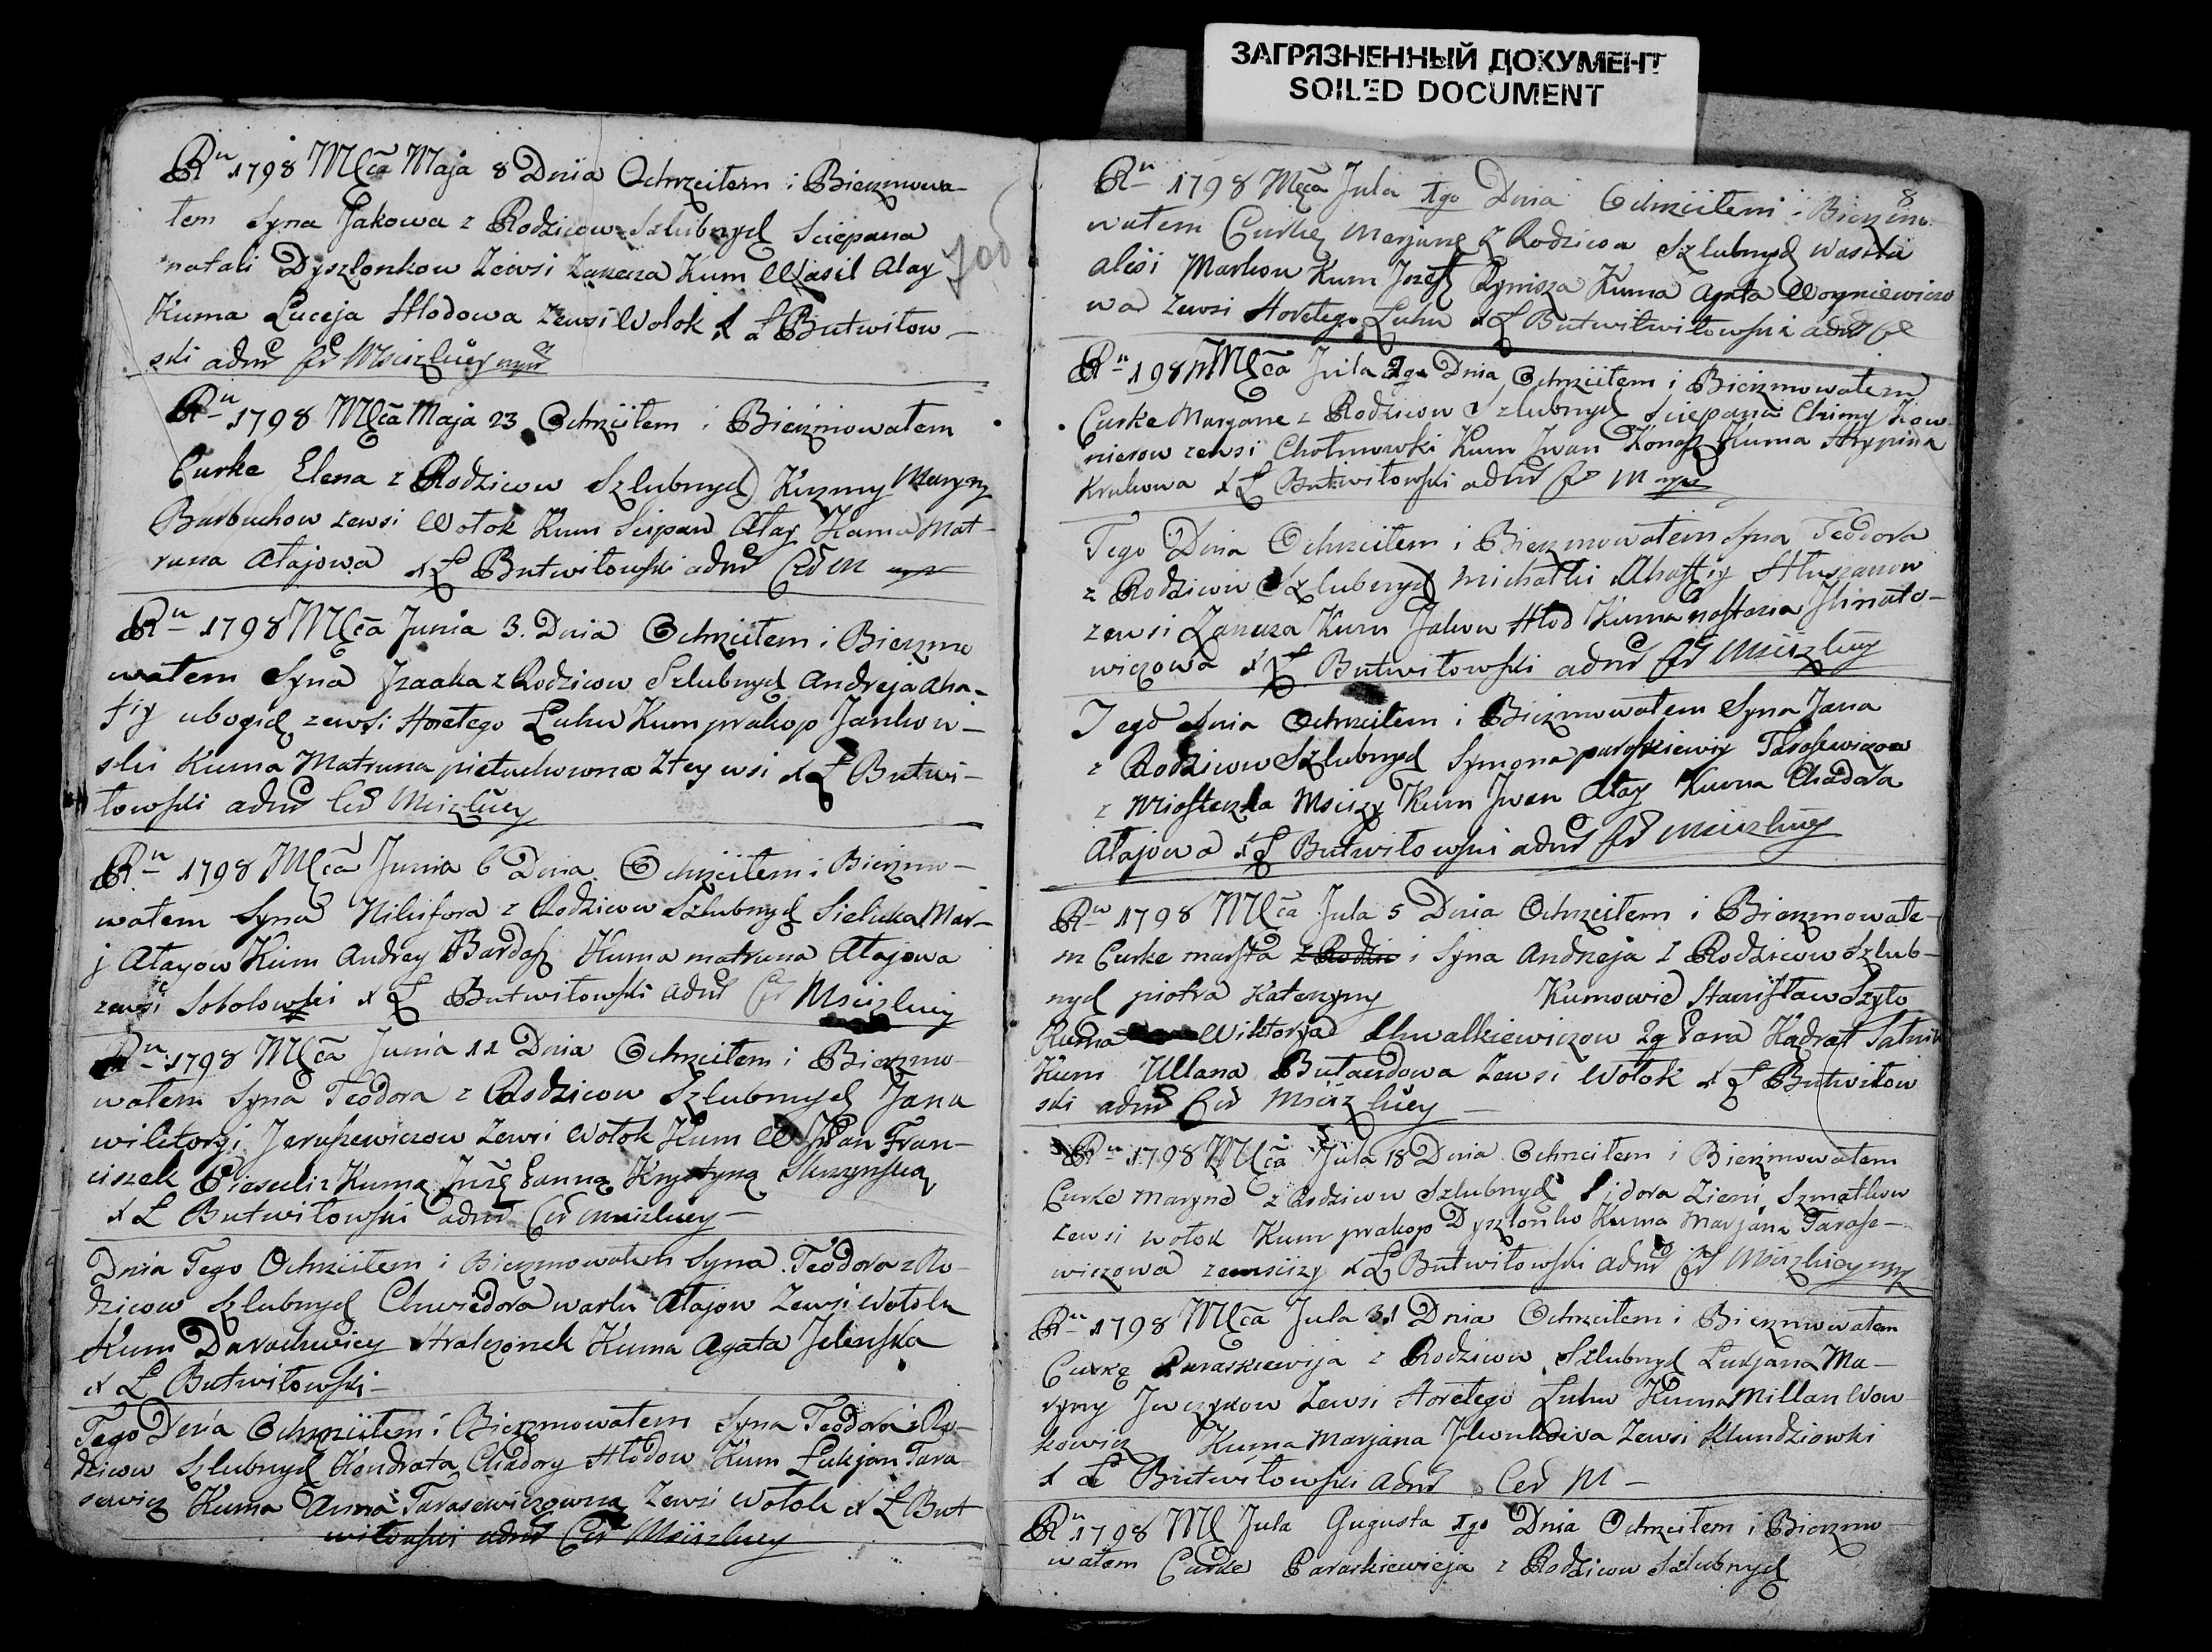 ЗАГРЯЗНЕННЫЙ ДОКУМЕНТ
SOILED DOCUMENT
Ru 1798 Mca Maja 8 Dnia Ochrzciłem i Bierzmowa-
łem Syna Jakowa z Rodzicow Szlubnych Sciepana
natali Dyszlonkow Zewsi Zanuza Kum Wasil Ałay
Kuma Luceja Hłodowa Zewsi Wołok X Ł Butwiłow-
ski admr
Ru 1798 Mca Maja 23 Ochrzciłem i Bierzmowałem
Curke Elena z Rodzicow Szlubnych Kuzmy Maryny
Barbuchow zewsi Wołok Kum Scipan Ałay Kuma Mat-
runa Ałajowa X Ł Butwiłowski admr
Ru 1798 Mca Junia 3. Dnia Ochrzciłem i Bierzmo
wałem Syna Izaaka z Rodzicow Szlubnych Andreja Aha-
fiy ubogich zewsi Horełego Łuhu Kum prakop Jankow-
ski Kuma Matruna pietuchowna Ztey wsi X Ł Butwi-
łowski admr
Ru 1798 Mca Junia 6 Dnia Ochrzciłem i Bierzmo-
wałem Syna Nikifora z Rodzicow Szlubnych Sieluka Mar-
j Ałayow Kum Andrey Bardasz Kuma matruna Ałajowa
zewsi Sobolowski X Ł Butwiłowski admr
Ru 1798 Mca Junia 11 Dnia Ochrzciłem i Bierzmo
wałem Syna Teodora z Rodzicow Szlubnych Jana
wiktoryi Jeruszewiczow Zewsi Wołok Kum W Jpan Fran-
ciszek Kuma Krystyna
X Ł Butwiłowski admr
Dnia Tego Ochrzciłem i Bierzmowałem Syna Teodora z Ro-
dzicow Szlubnych Chwiedora warki Ałajow Zewsi Wołok
Kum Kuma Agata Jelenska
X Ł Butwiłowski-
Tego Dnia Ochrzciłem i Bierzmowałem Syna Teodora z Ro-
dzicow Szlubnych Kondrata Chadory Hłodow Kum Łukjan Tara
sewicz Kuma Anna Tarasewiczowna Zewsi Wołok X Ł But
wiłowski admr
8
Ru 1798 Mca Jula 1go Dnia Ochrzciłem i Bierzmo
wałem Curkę Marjannę z Rodzicow Szlubnych Wasila
Alesi Markow Kum Jozef Kuma Agata
wa Zewsi Horełego Łuhu X Ł Butwiłwiłowski admr
Ru 198 Mca Jula 2go Dnia Ochrzciłem i Bierzmowałem
Curke Maryane z Rodzicow Szlubnych Sciepana Chimy Kow
nierow zewsi Kum Jwan Konasz Kuma Ahrypina
Krukowa X Ł Butwiłowski admr
Tego Dnia Ochrzciłem i Bierzmowałem Syna Teodora
z Rodzicow Szlubnych Michałki Ahafiy Hłuszanow
zewsi Zanuza Kum Jakow Hłod Kuma nastazia Jhnato-
wiczowa X Ł Butwiłowski admr
Tego dnia Ochrzciłem i Bierzmowałem Syna Jana
z Rodzicow Szlubnych Symona paraskiewiy Tarasewiczow
z Miasteczka Msciży Kum Jwan Ałay Kuma Chadora
Ałajowa X Ł Butwiłowski admr
Ru 1798 Mca Jula 5 Dnia Ochrzciłem i Bierzmowałe-
m Curke marta i Syna Andrzeja z Rodzicow Szlub-
nych piotra Katerzyny Kumowie Stanisław Szyło
Kuma Wiktorya Chwalkiewiczow 2a Para Kadrat
Kum Ullana Bułandowa Zewsi Wołok X Ł Butwiłow
ski admr
Ru 1798 Mca Jula 18 Dnia Ochrzciłem i Bierzmowałem
Curke maryne z Rodzicow Szlubnych Sidora Zieni Szmatkow
zewsi wołok Kum prakop Dyszlonko Kuma Marjana Tarase-
wiczowa X Ł Butwiłowski admr
Ru 1798 Mca Jula 31 Dnia Ochrzciłem i Bierzmowałem
Curkę Paraskiewija z Rodzicow Szlubnych Łukjana Ma-
ryny Zewsi Horełego Łuhu Kuma Millan Wow
kowicz Kuma Marjana Zewsi
X Ł Butwiłowski admr Cer M-
Ru 1798 M Jula Gugusta 1go Dnia Ochrzciłem i Bierzmo-
wałem Curke Paraskiewieja z Rodzicow Szlubnych